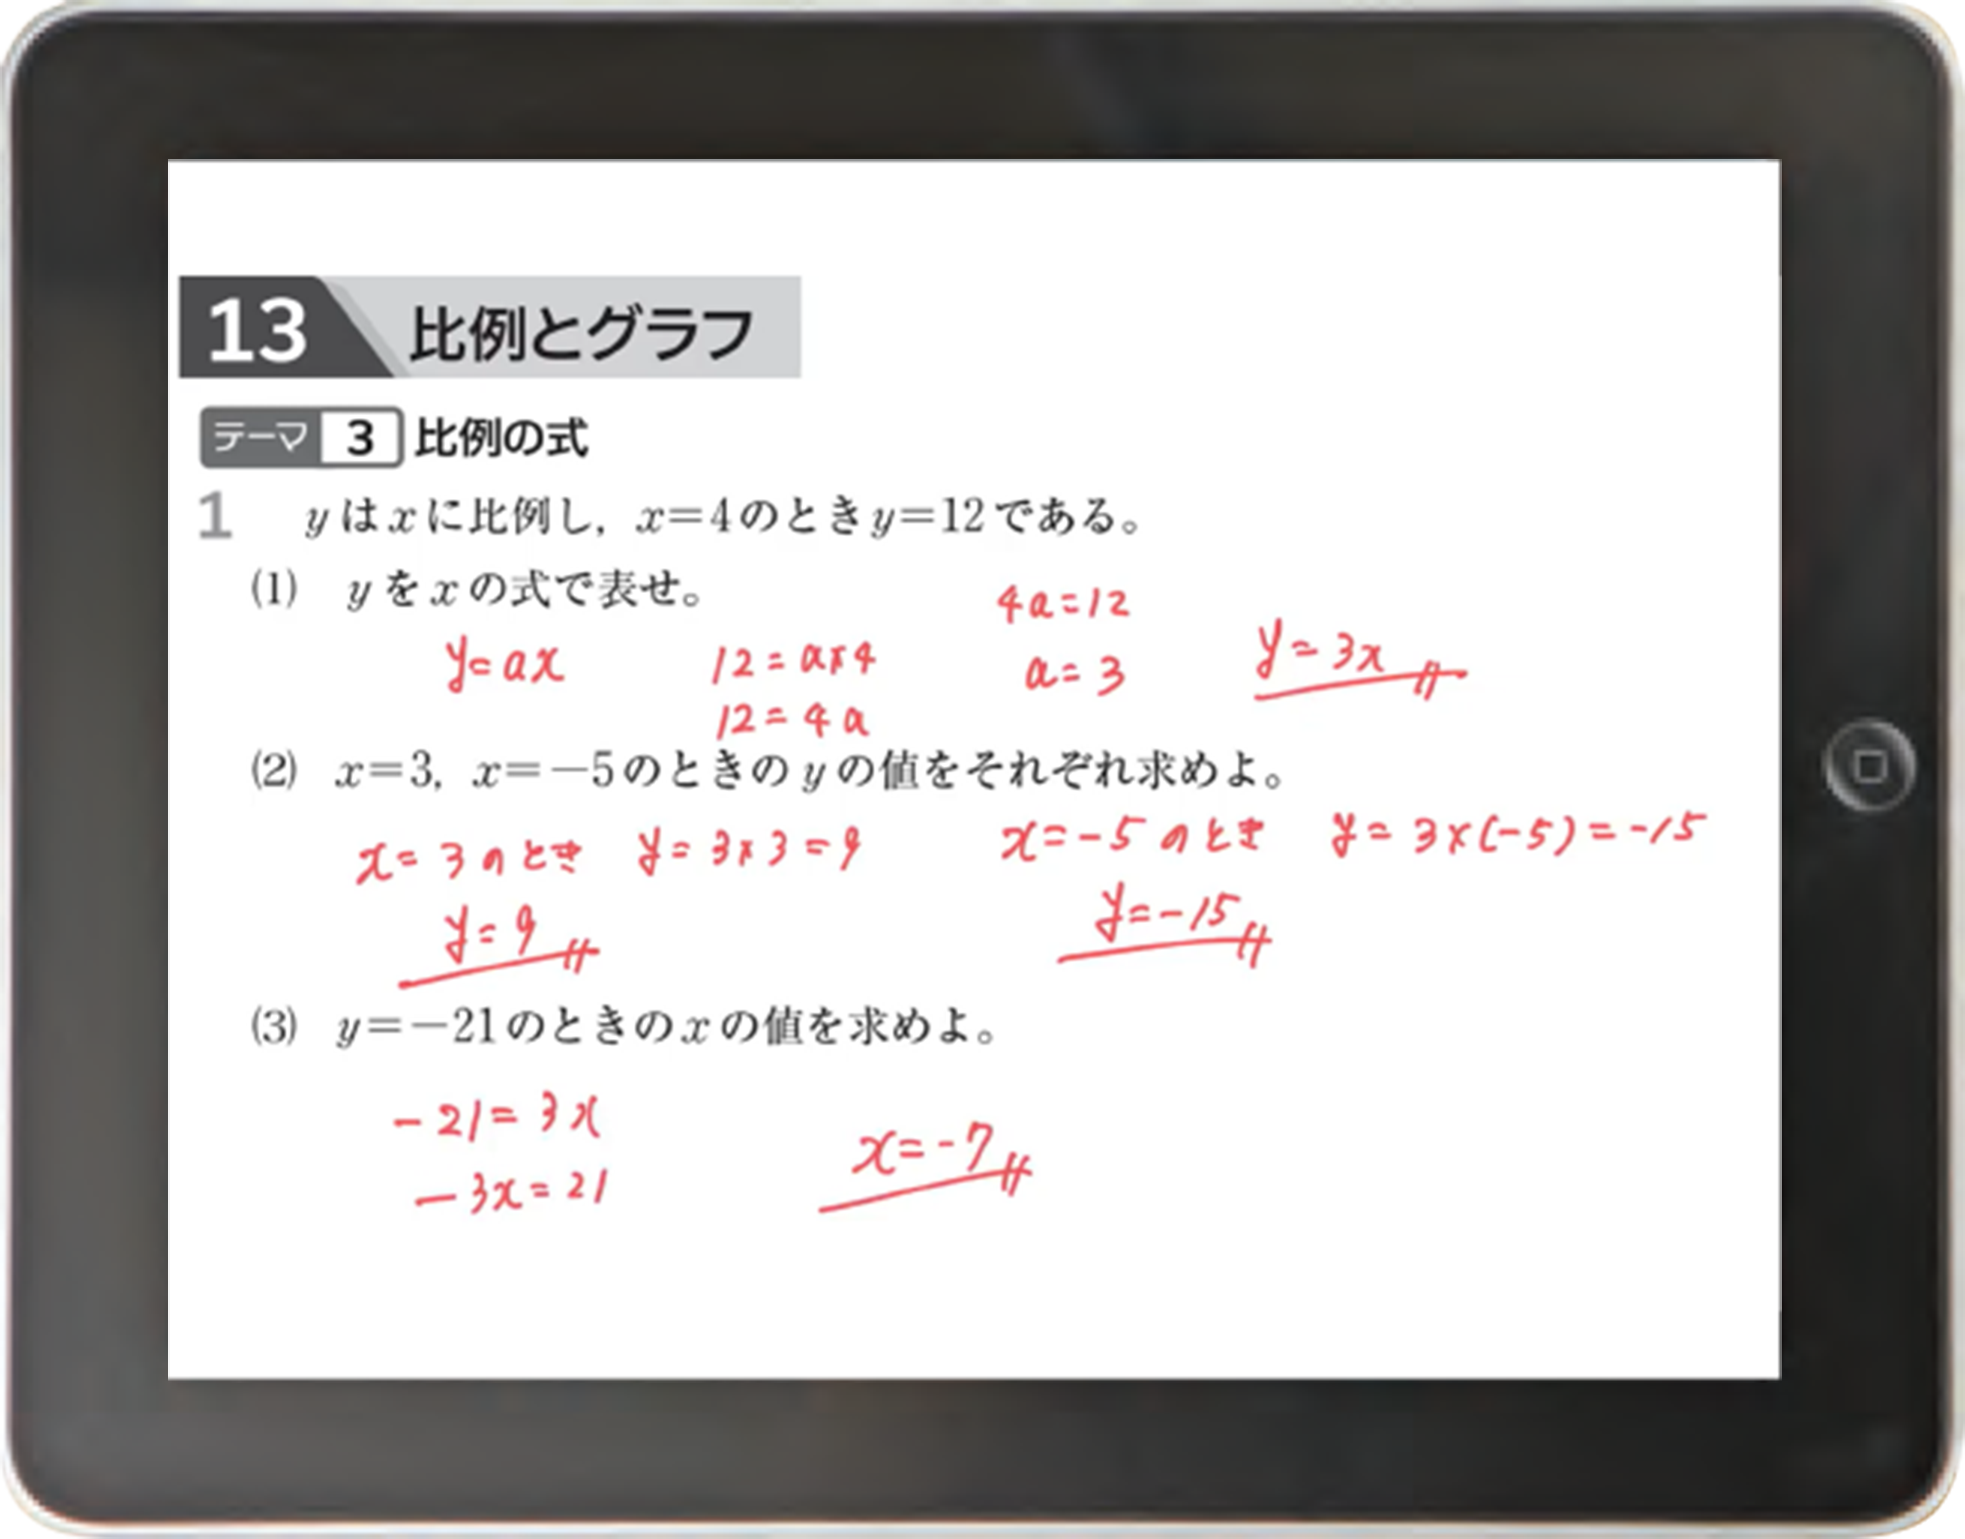 13 比例とグラフ
テーマ 3 比例の式
1 yはxに比例し, x=4のときy=12である。
(1) yをxの式で表せ。
y=ax
12=a×4
12=4a
4a=12
a=3
y=3x
(2) x=3, x=-5のときのyの値をそれぞれ求めよ。
x=3のとき y=3×3=9
y=9
x=-5のとき y=3×(-5)=-15
y=-15
(3) y=-21のときのxの値を求めよ。
-21=3x
-3x=21
x=-7